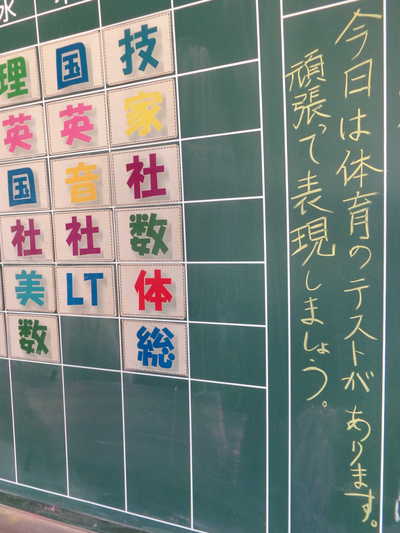 今日は体育のテストがあります。
頑張って表現しましょう。
技
家
社
数
体
総
国
英
音
社
LT
理
英
国
社
美
数